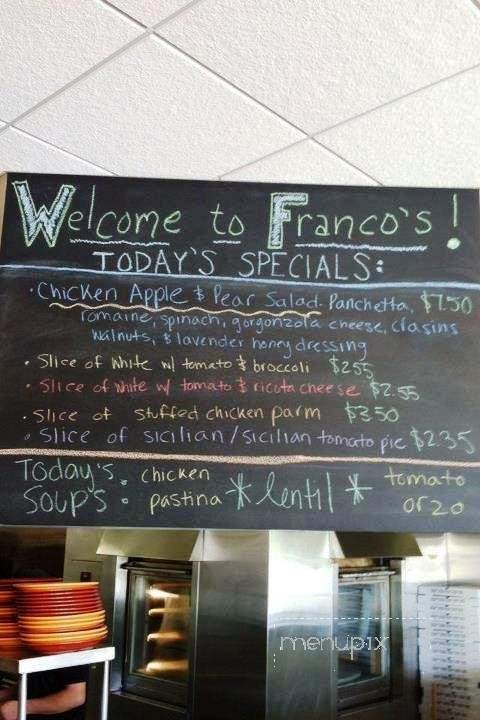 Welcome to Franco's!
TODAY'S SPECIALS:
· Chicken Apple & Pear Salad. Panchetta, $7.50
romaine, spinach, gorgonzola cheese, clasins
walnuts, & lavender honey dressing
· Slice of white w/ tomato & broccoli $2.55
· Slice of white w/ tomato & ricota cheese $2.55
· Slice of stuffed chicken parm $3.50
· Slice of sicilian/sicilian tomato pie $2.35
Today's Soup's: chicken pastina * lentil * tomato orzo
menupix